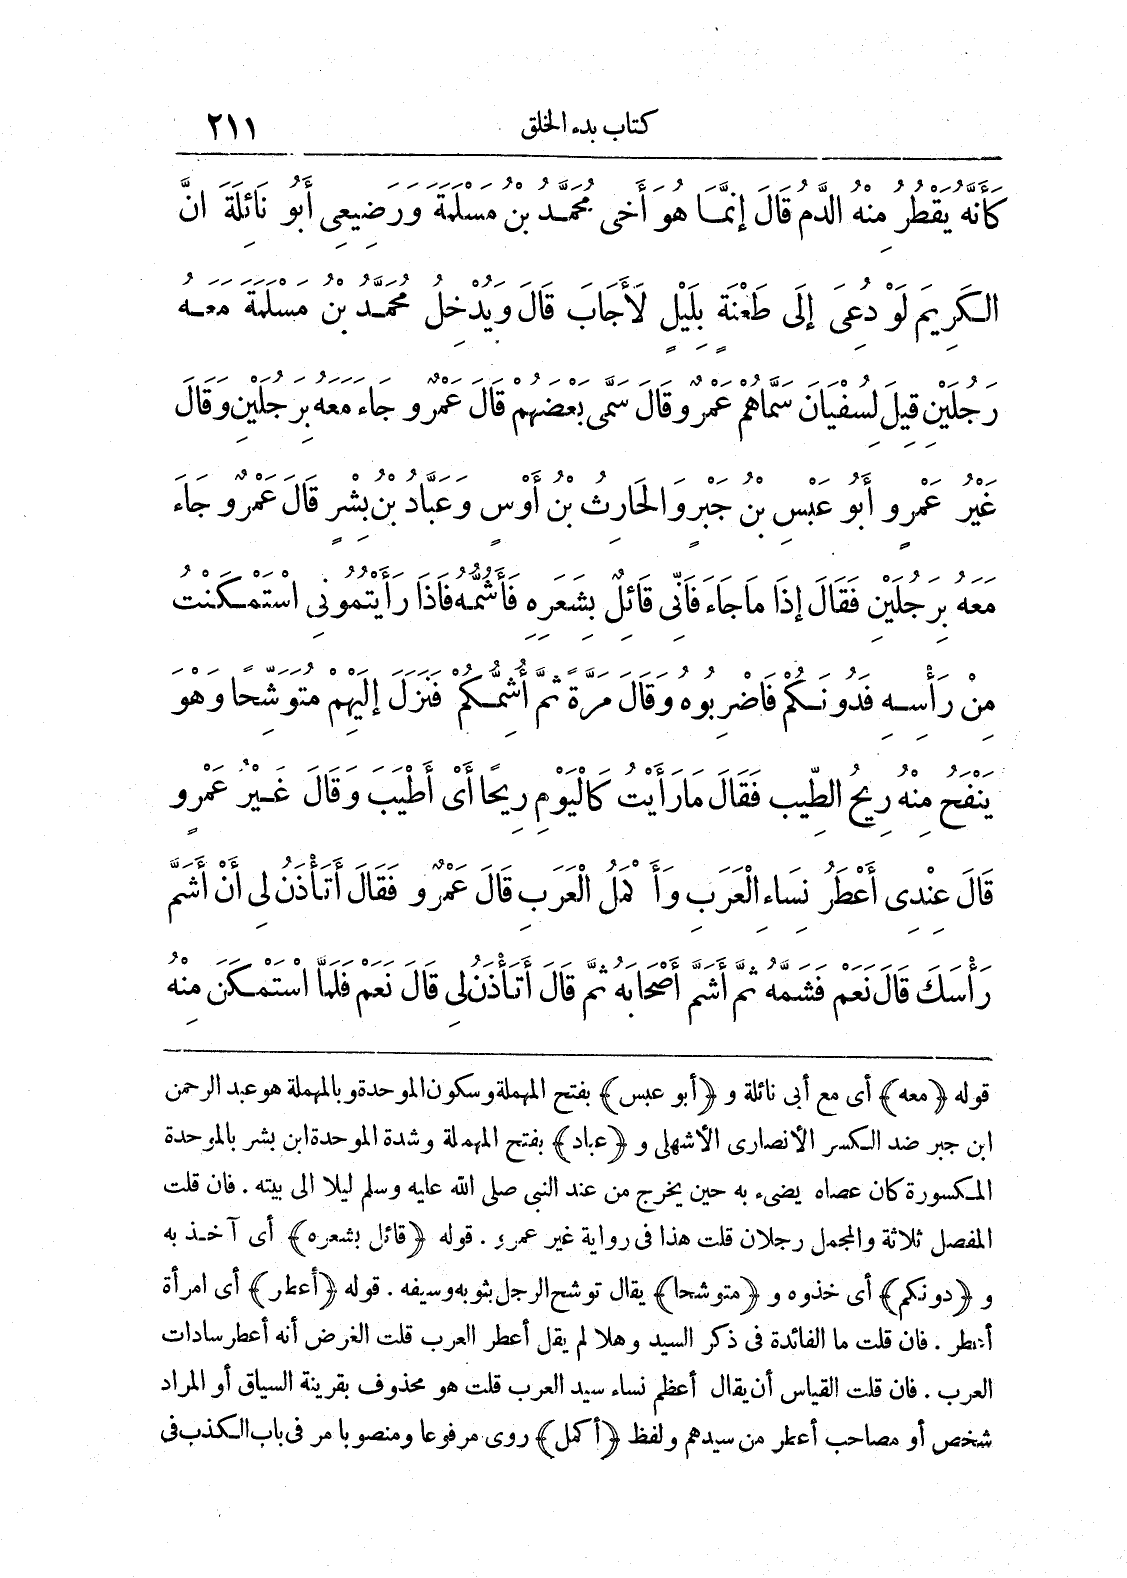 كتاب بدء الخلق ٢١١
كَأَنَّهُ يَقْطُرُ مِنْهُ الدَّمُ قَالَ إِنَّمَا هُوَ أَخِي مُحَمَّدُ بْنُ مَسْلَمَةَ وَرَضِيعِي أَبُو نَائِلَةَ انَّ
الكَرِيمَ لَوْ دُعِىَ إِلَى طَعْنَةٍ بِلَيْلٍ لَأَجَابَ قَالَ وَيُدْخِلُ مُحَمَّدُ بْنُ مَسْلَمَةَ مَعَهُ
رَجُلَيْنِ قِيلَ لِسُفْيَانَ سَمَّاهُمْ عَمْرٌو قَالَ سَمَّى بَعْضَهُمْ قَالَ عَمْرٌو جَاءَ مَعَهُ بِرَجُلَيْنِ وَقَالَ
غَيْرُ عَمْرٍو أَبُو عَبْسِ بْنُ جَبْرٍ وَالحَارِثُ بْنُ أَوْسٍ وَعَبَّادُ بْنُ بِشْرٍ قَالَ عَمْرٌو جَاءَ
مَعَهُ بِرَجُلَيْنِ فَقَالَ إِذَا مَا جَاءَ فَانِّي قَائِلٌ بِشَعَرِهِ فَأَشُمُّهُ فَاذَا رَأَيْتُمُونِي اسْتَمْكَنْتُ
مِنْ رَأْسِهِ فَدُونَكُمْ فَاضْرِبُوهُ وَقَالَ مَرَّةً ثُمَّ أُشِمُّكُمْ فَنَزَلَ إِلَيْهِمْ مُتَوَشِّحًا وَهْوَ
يَنْفَحُ مِنْهُ رِيحُ الطِّيبِ فَقَالَ مَا رَأَيْتُ كَالْيَوْمِ رِيحًا أَىْ أَطْيَبَ وَقَالَ غَيْرُ عَمْرٍو
قَالَ عِنْدِي أَعْطَرُ نِسَاءِ الْعَرَبِ وَأَكْمَلُ الْعَرَبِ قَالَ عَمْرٌو فَقَالَ أَتَأْذَنُ لِي أَنْ أَشَمَّ
رَأْسَكَ قَالَ نَعَمْ فَشَمَّهُ ثُمَّ أَشَمَّ أَصْحَابَهُ ثُمَّ قَالَ أَتَأْذَنُ لِي قَالَ نَعَمْ فَلَمَّا اسْتَمْكَنَ مِنْهُ
قوله ﴿معه﴾ أى مع أبى نائلة و ﴿أبو عبس﴾ بفتح المهملة وسكون الموحدة وبالمهملة هو عبد الرحمن
ابن جبر ضد الكسر الأنصارى الأشهلى و ﴿عباد﴾ بفتح المهملة وشدة الموحدة ابن بشر بالموحدة
المكسورة كان عصاه يضىء به حين يخرج من عند النبى صلى الله عليه وسلم ليلا الى بيته . فان قلت
المفصل ثلاثة والمجمل رجلان قلت هذا فى رواية غير عمرو . قوله ﴿قائل بشعره﴾ أى آخذ به
و ﴿دونكم﴾ أى خذوه و ﴿متوشحا﴾ يقال توشح الرجل بثوبه وسيفه . قوله ﴿أعطر﴾ أى امرأة
أعطر . فان قلت ما الفائدة فى ذكر السيد وهلا لم يقل أعطر العرب قلت الغرض أنه أعطر سادات
العرب . فان قلت القياس أن يقال أعظم نساء سيد العرب قلت هو محذوف بقرينة السياق أو المراد
شخص أو مصاحب أعطر من سيدهم ولفظ ﴿أكمل﴾ روى مرفوعا ومنصوبا مر فى باب الكذب فى